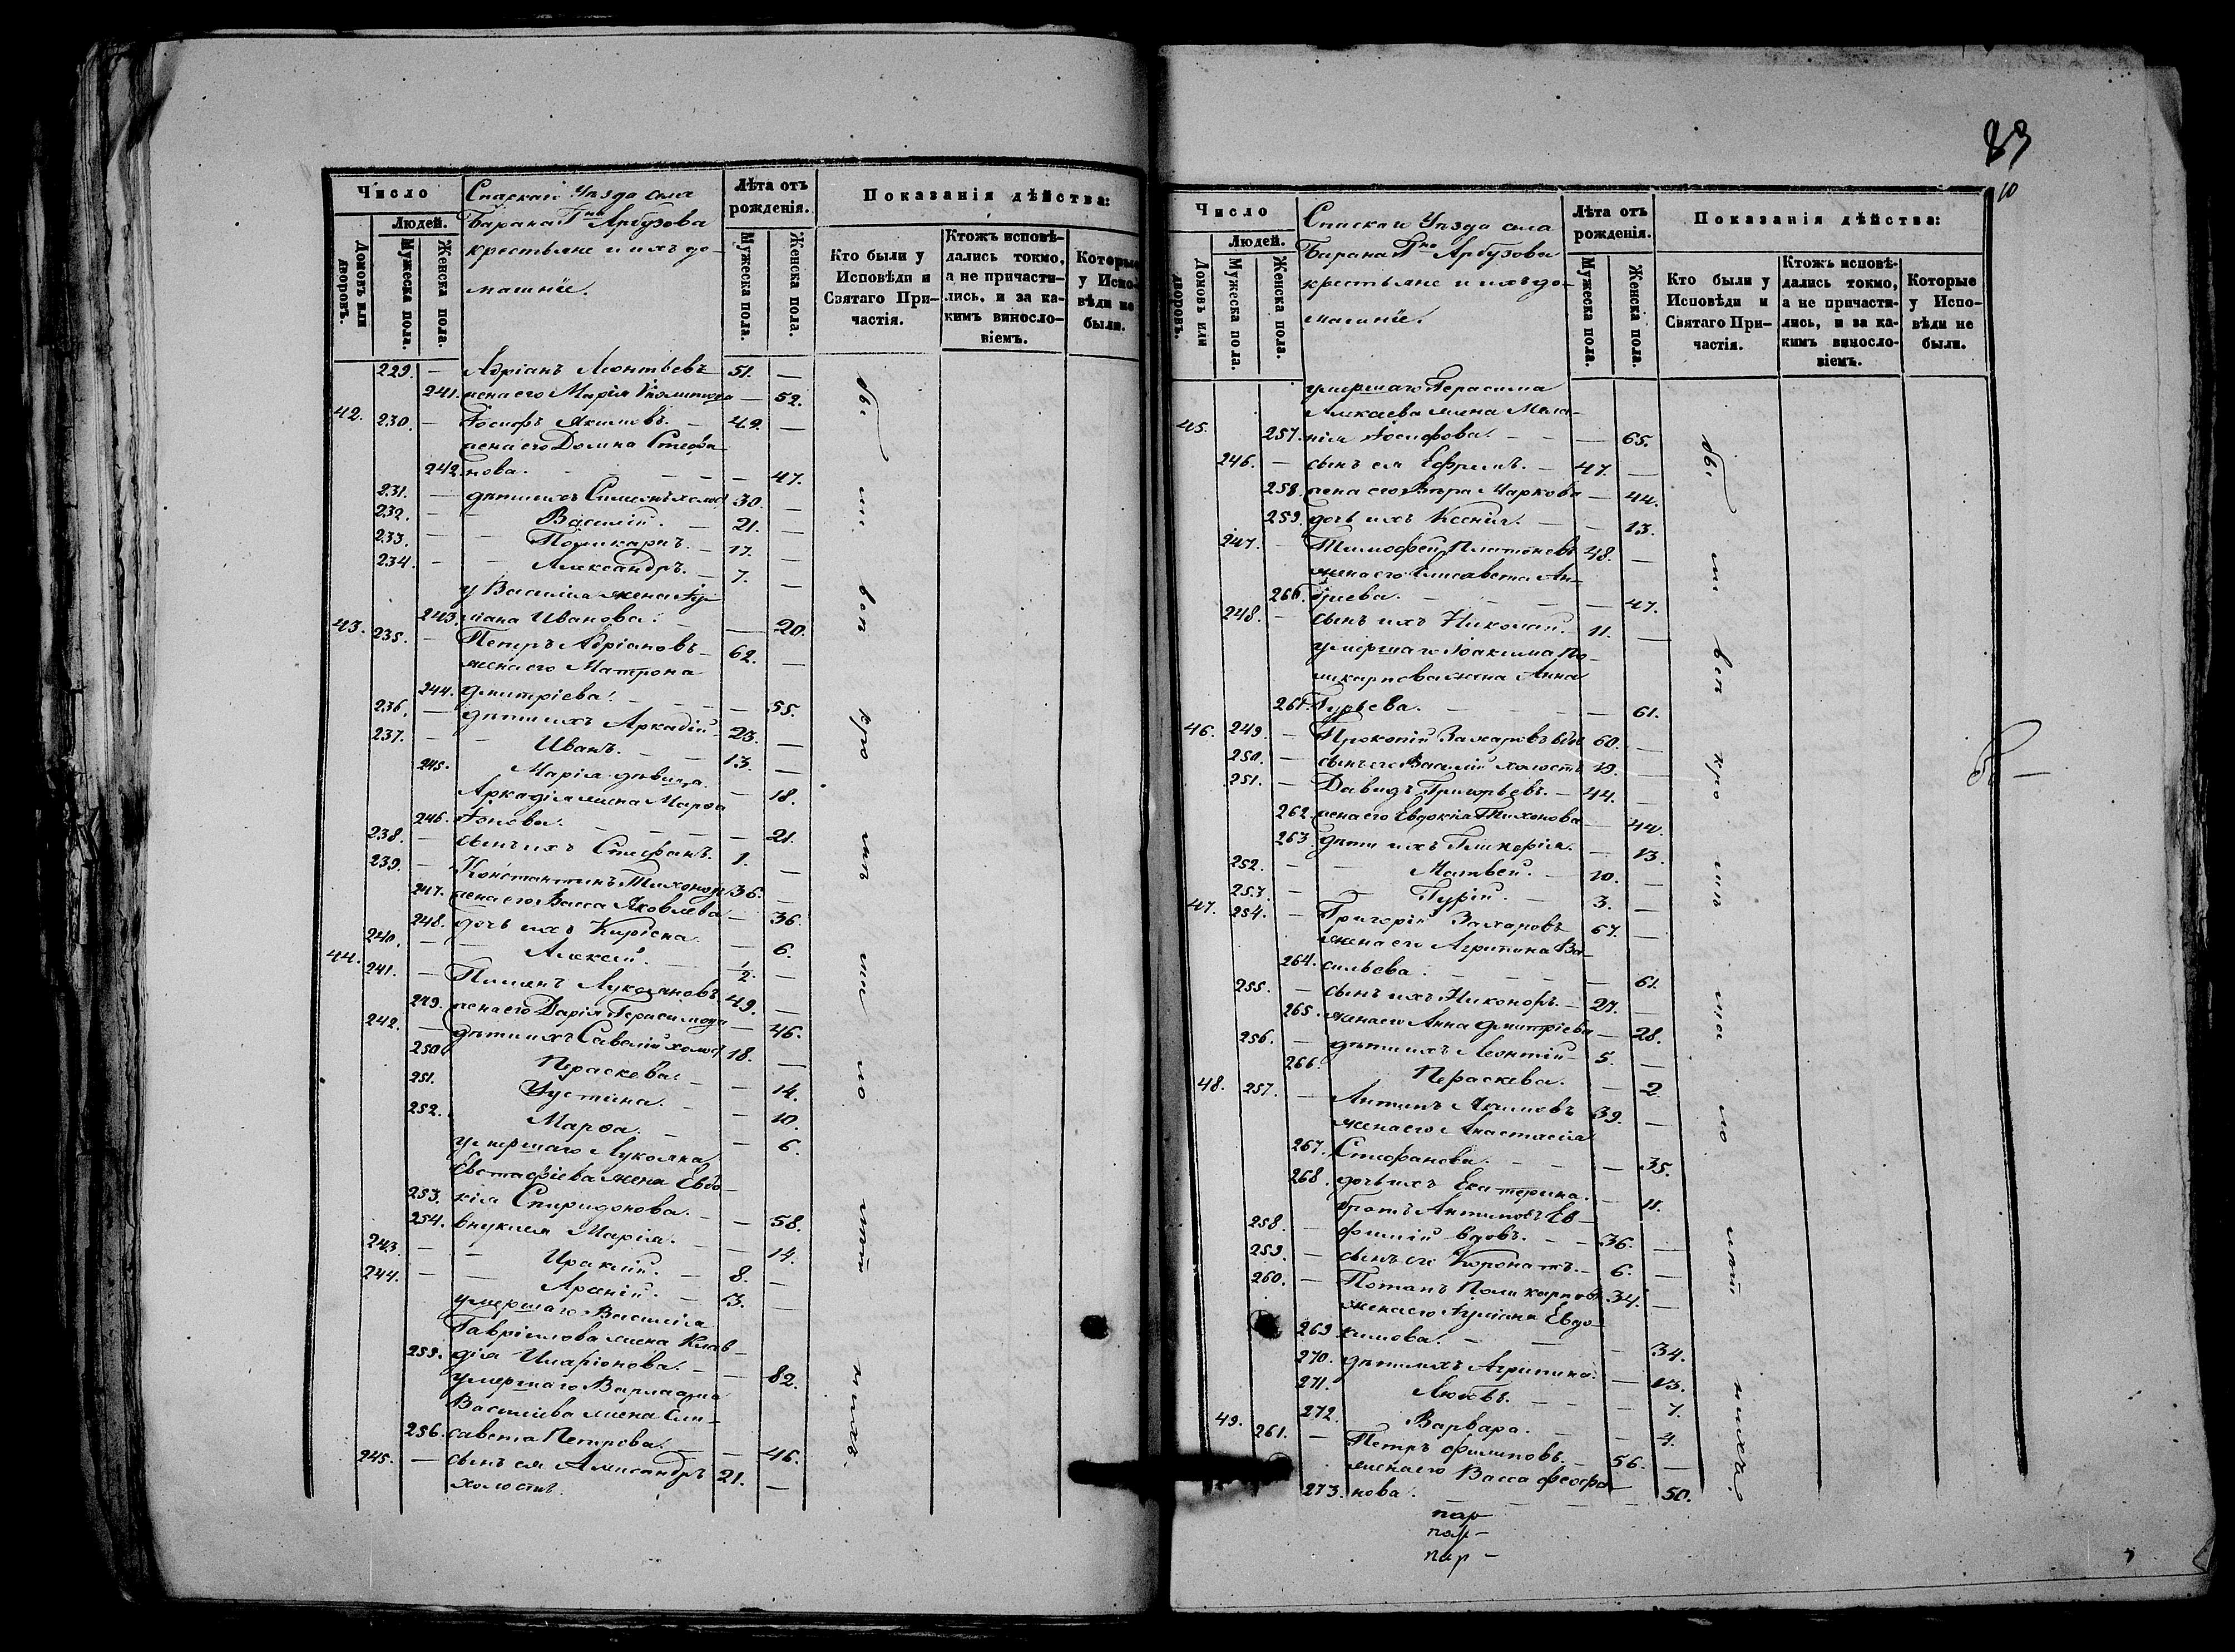 Число
Людей.
Домовъ или дворовъ.
Мужеска пола.
Женска пола.
Спаскаго Уѣзда села
Барана Гна Арбузова
крестьяне и ихъ до-
машніе.
Лѣта отъ рожденія.
Мужеска пола.
Женска пола.
Показанія дѣйства:
Кто были у Исповѣди и Святаго При-частія.
Ктожъ исповѣ-дались токмо, а не причасти-лись, и за ка-кимъ винословіемъ.
Которые у Испо-вѣди не были.
229. — Адріанъ Леонтьевъ 51. —
241. жена его Марія — 52.
42. 230. — Іосифъ Якимовъ. — 49. —
жена его Домна Стефа
242. нова. — — — 47.
231. — дѣти ихъ Симеонъ холос 30. —
232. — — Василій. — 21. —
233. — — Поликарпъ. — 17. —
234. — — Александръ. — 7. —
у Василія жена Іу-
243. ліана Иванова. — — 20.
43. 235. — Петръ Адріановъ — 62. —
жена его Матрона
244. Дмитріева. — — — 55.
236. — дѣти ихъ Аркадій — 23. —
237. — — Иванъ. — 13. —
245. Марія дѣвица. — 18.
Аркадія жена Марѳа
246. Іонова. — — — 21.
238. — сынъ ихъ Стефанъ. 1. —
239. — Константинъ Тихонов 36. —
247. жена его Васса Яковлева — 36.
248. дочь ихъ — 6.
240. — — Алексій. — 1/2. —
44. 241. — Пименъ Лукояновъ. 49. —
249. жена его Дарія Герасимова — 46.
242. — дѣти ихъ Савелій холос 18. —
250. Параскева. — — 14.
251. Устина. — — 10.
252. Марѳа. — — 6.
умершаго Лукояна
Евстафіева жена Евдо-
253. кія Спиридонова. — — 58.
254. внуки ея Марія. — — 14.
243. — — Ираклій. — 8. —
244. — — Арсеній. — 3. —
умершаго Василія
Гавріилова жена Клав-
255. дія Иларіонова. — — 82.
умершаго Варлаама
Василіева жена Ели-
256. савета Петрова. — — 46.
245. — сынъ ея Александръ 21. —
холостъ.
бы ли все по
83
10
Число
Людей.
Домовъ или дворовъ.
Мужеска пола.
Женска пола.
Спаскаго Уѣзда села
Барана Гна Арбузова
крестьяне и ихъ до-
машніе.
Лѣта отъ рожденія.
Мужеска пола.
Женска пола.
Показанія дѣйства:
Кто были у Исповѣди и Святаго При-частія.
Ктожъ исповѣ-дались токмо, а не причасти-лись, и за ка-кимъ винословіемъ.
Которые у Испо-вѣди не были.
умершаго Герасима
Алексѣева жена Мела-
45. 257. нія Іосифова. — — — 65.
246. — сынъ ея Ефремъ. — 47. —
258. жена его Вѣра Маркова — 44.
259. дочь ихъ Ксенія. — — 13.
247. — Тимофей Платоновъ 48. —
жена его Елисавета Ан-
260. дреева. — — — 47.
248. — сынъ ихъ Николай. — 11. —
умершаго Іоакима По-
ликарпова жена Анна
261. Гурьева. — — — 61.
46. 249. — Прокопій Захаровъ вдов 60. —
250. — сынъ его Василій холостъ 19. —
251. — Давидъ Григорьевъ. — 44. —
262. жена его Евдокія Тихонова — 44.
263. дѣти ихъ Гликерія. — 13.
252. — — Матвей. — 10. —
253. — — Гурій. — 3. —
47. 254. — Григорій Захаровъ 67. —
жена его Агрипина Ва-
264. сильева. — — — 61.
255. — сынъ ихъ Никоноръ. — 27. —
265. жена его Анна Дмитріева — 28.
256. — дѣти ихъ Леонтій — 5. —
266. Параскева. — — 2
48. 257. — Антипъ Якимовъ 39. —
жена его Анастасія
267. Стефанова. — — — 35.
268. дочь ихъ Екатерина. — 11.
братъ Антиповъ Ев-
258. — фимій вдовъ. — — 36. —
259. — сынъ его Коронатъ. — 6. —
260. — Потапъ Поликарповъ 34. —
жена его Іуліана Евдо-
269 кимова. — — — 34.
270. дѣти ихъ Агрипина. — 13.
271. Любовь. — — — 7.
272. Варвара. — — 4.
49. 261. — Петръ Филиповъ. — 56. —
жена его Васса Феофа
273. нова. — — — 50.
пар
пар —
пар —